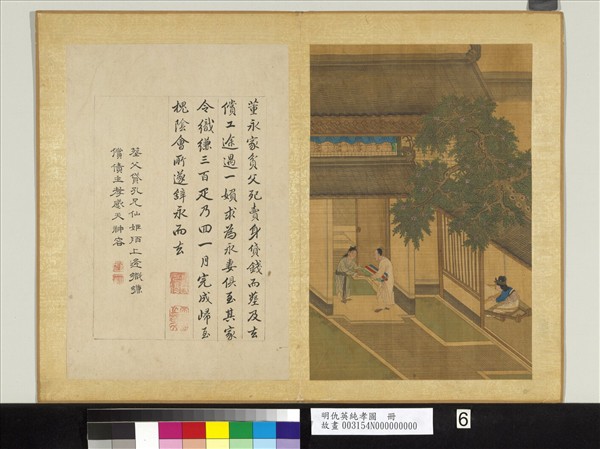 董永家貧父死賣身貸錢而塟及去
償工途遇一婦求為永妻俱至其家
令織縑三百疋乃回一月完成歸至
槐陰會所遂辭永而去
塟父貸孔兄仙姬陌上逢織縑
償債主孝感天神容
明仇英純孝圖 冊
故畫 003154N000000000
6